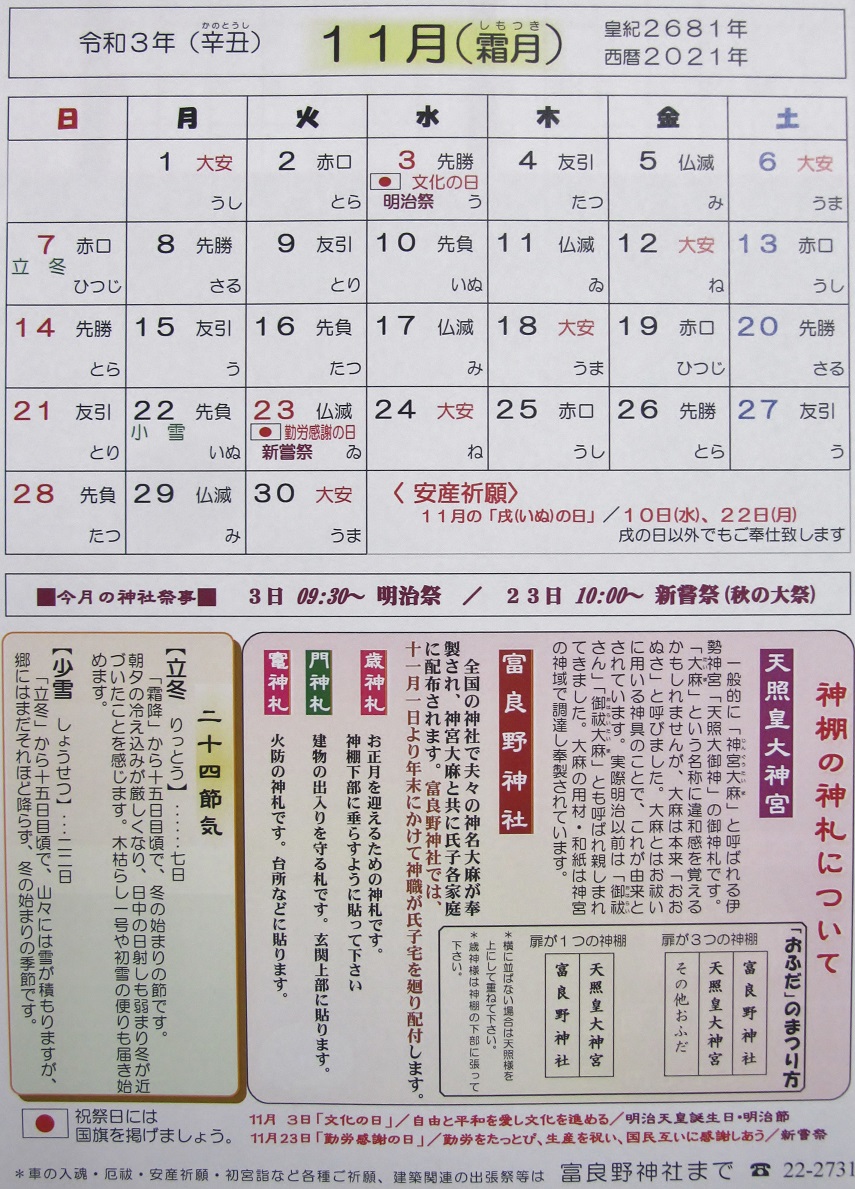 令和3年（辛丑） 11月（霜月） 皇紀2681年
かのとうし しもつき 西暦2021年
日 月 火 水 木 金 土
1 大安 2 赤口 3 先勝 4 友引 5 仏滅 6 大安
文化の日
うし とら 明治祭 う たつ み うま
7 赤口 8 先勝 9 友引 10 先負 11 仏滅 12 大安 13 赤口
立 冬
ひつじ さる とり いぬ ゐ ね うし
14 先勝 15 友引 16 先負 17 仏滅 18 大安 19 赤口 20 先勝
とら う たつ み うま ひつじ さる
21 友引 22 先負 23 仏滅 24 大安 25 赤口 26 先勝 27 友引
小 雪 勤労感謝の日
とり いぬ 新嘗祭 ゐ ね うし とら う
28 先負 29 仏滅 30 大安
たつ み うま
〈 安産祈願〉
11月の「戌(いぬ)の日」／10日(水)、22日(月)
戌の日以外でもご奉仕致します
■今月の神社祭事■ 3日 09:30～ 明治祭 ／ 23日 10:00～ 新嘗祭(秋の大祭)
神棚の神札について
天照皇大神宮
一般的に「神宮大麻」と呼ばれる伊
勢神宮「天照大御神」の御神札です。
「大麻」という名称に違和感を覚える
かもしれませんが、大麻は本来「おお
ぬさ」と呼びました。大麻とはお祓い
に用いる神具のことで、これが由来と
されています。実際明治以前は「御祓
さん」「御祓大麻」とも呼ばれ親しまれ
てきました。大麻の用材・和紙は神宮
の神域で調達し奉製されています。
富良野神社
全国の神社で夫々の神名大麻が奉
製され、神宮大麻と共に氏子各家庭
に配布されます。富良野神社では、
十一月一日より年末にかけて神職が氏子宅を廻り配付します。
歳神札
お正月を迎えるための神札です。
神棚下部に垂らすように貼って下さい
門神札
建物の出入りを守る札です。玄関上部に貼ります。
竈神札
火防の神札です。台所などに貼ります。
「おふだ」のまつり方
扉が3つの神棚
富良野神社
天照皇大神宮
その他おふだ
扉が1つの神棚
天照皇大神宮
富良野神社
＊横に並ばない場合は天照様を
上にして重ねて下さい。
＊歳神様は神棚の下部に張って
下さい。
二十四節気
【立冬 りっとう】……七日
「霜降」から十五日目頃で、冬の始まりの節です。
朝夕の冷え込みが厳しくなり、日中の日射しも弱まり冬が近
づいたことを感じます。木枯らし一号や初雪の便りも届き始
めます。
【少雪 しょうせつ】…二二日
「立冬」から十五日目頃で、山々には雪が積もりますが、
郷にはまだそれほど降らず、冬の始まりの季節です。
祝祭日には
国旗を掲げましょう。
11月 3日「文化の日」／自由と平和を愛し文化を進める／明治天皇誕生日・明治節
11月23日「勤労感謝の日」／勤労をたっとび、生産を祝い、国民互いに感謝しあう／新嘗祭
＊車の入魂・厄祓・安産祈願・初宮詣など各種ご祈願、建築関連の出張祭等は 富良野神社まで ☎ 22-2731